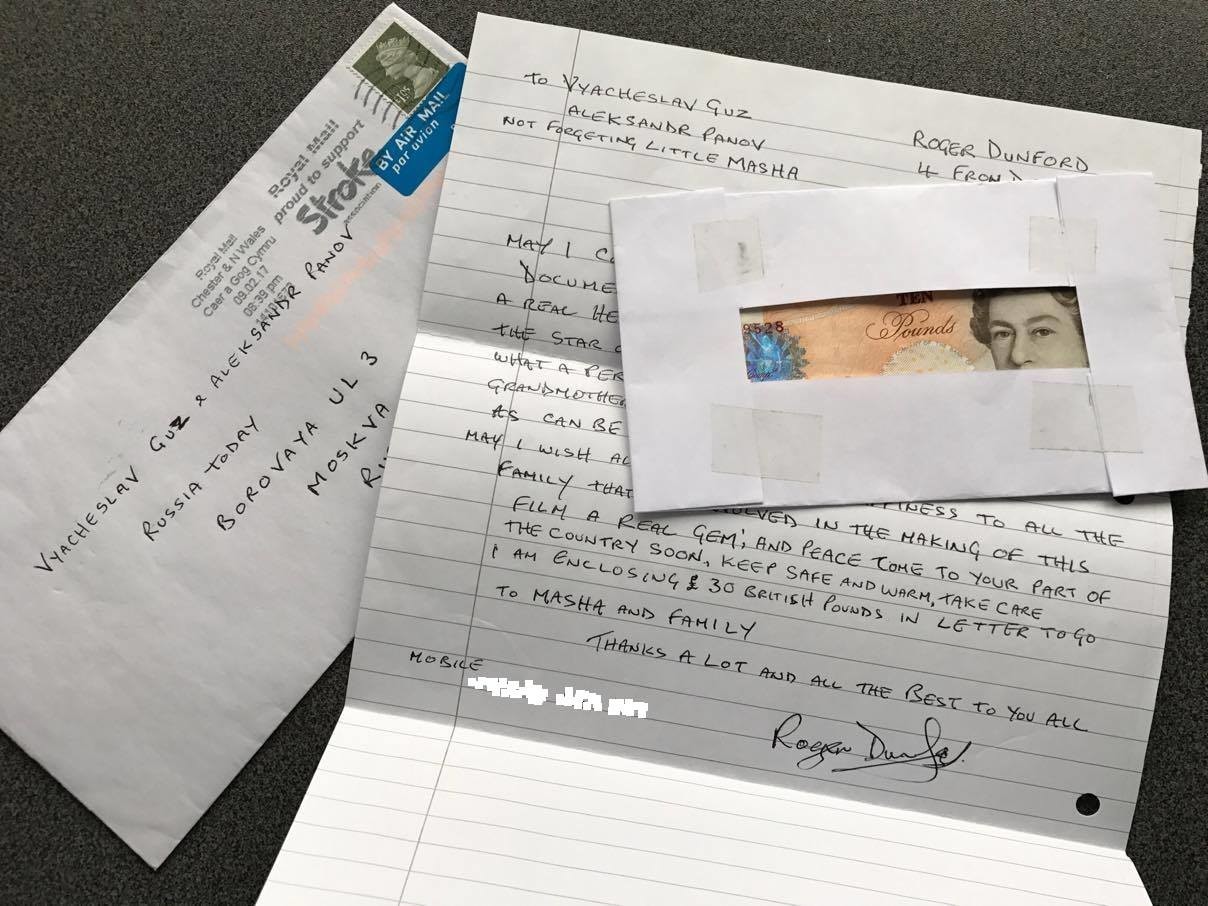 £1.05
BY AIR MAIL
par avion
Royal Mail
proud to support
Stroke
association
Royal Mail
Chester & N Wales
Caer a Gog Cymru
09.02.17
08:39 pm
VYACHESLAV GUZ & ALEKSANDR PANOV
RUSSIA TODAY
BOROVAYA UL 3
MOSKVA
TO VYACHESLAV GUZ
ALEKSANDR PANOV
NOT FORGETING LITTLE MASHA
ROGER DUNFORD
4 FRON
MAY I
DOCUME
A REAL HE
THE STAR
WHAT A PER
GRANDMOTHE
AS CAN BE
MAY I WISH AL
FAMILY THAT
PINESS TO ALL THE
OLVED IN THE MAKING OF THIS
FILM A REAL GEM; AND PEACE COME TO YOUR PART OF
THE COUNTRY SOON, KEEP SAFE AND WARM, TAKE CARE
I AM ENCLOSING £30 BRITISH POUNDS IN LETTER TO GO
TO MASHA AND FAMILY
THANKS A LOT AND ALL THE BEST TO YOU ALL
MOBILE
Roger Dunford
9528
TEN
Pounds